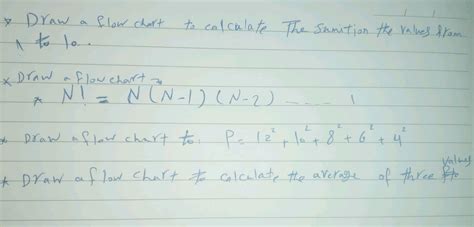 * Draw a flow chart to calculate The sumition the values from
1 to 10.
* Draw a flow chart →
* N! = N(N-1)(N-2) ..... 1
* Draw a flow chart to. P = 12² + 10² + 8² + 6² + 4²
* Draw a flow chart to calculate the average of three values